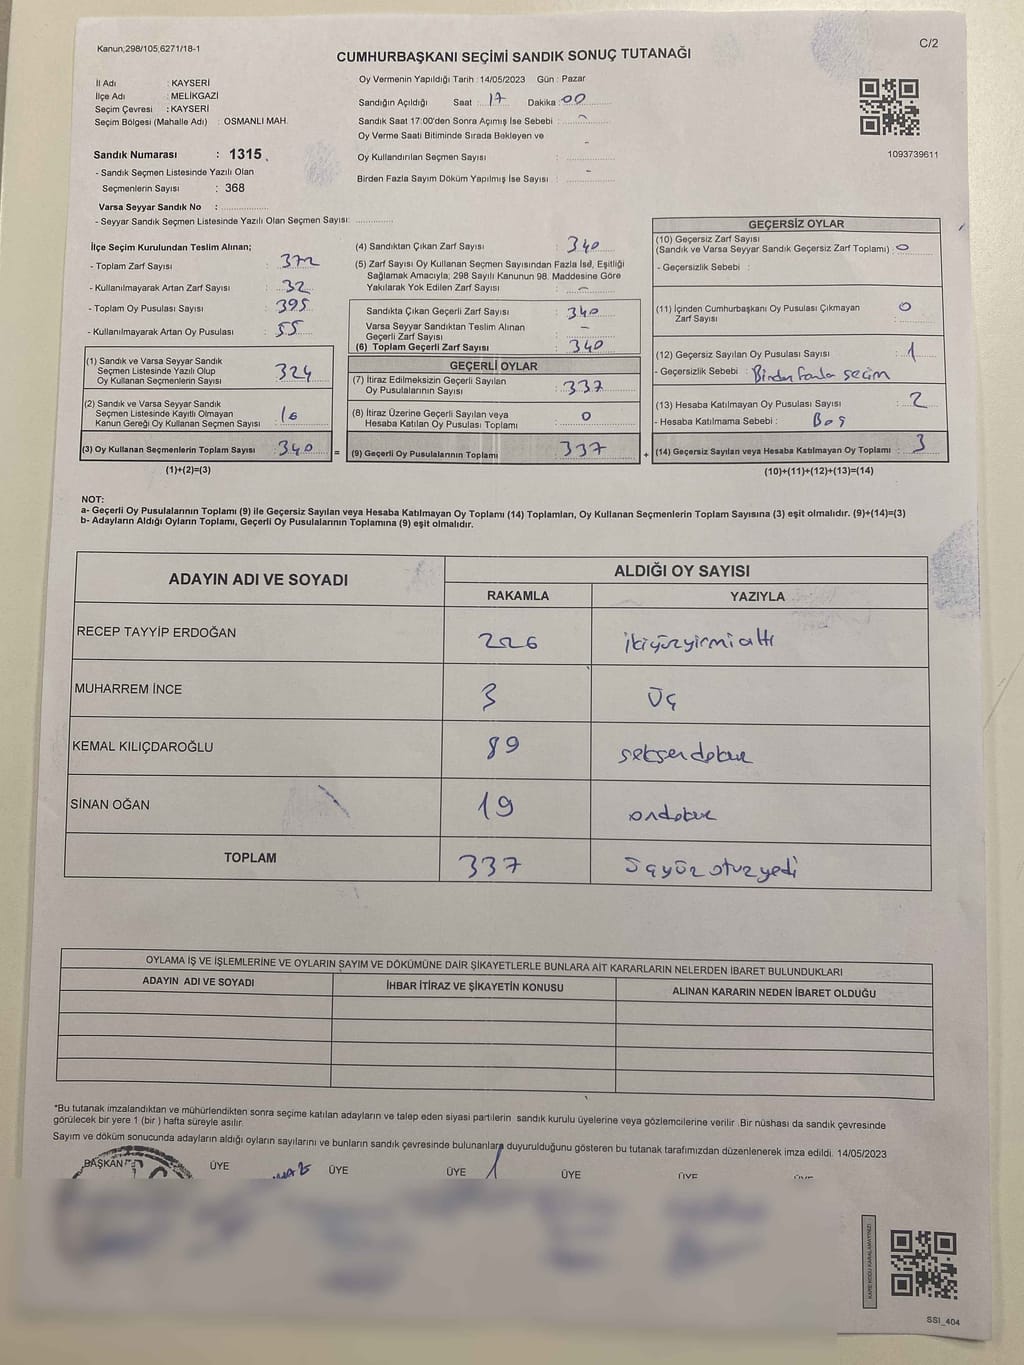 Kanun;298/105,6271/18-1
C/2
CUMHURBAŞKANI SEÇİMİ SANDIK SONUÇ TUTANAĞI
İl Adı : KAYSERİ
İlçe Adı : MELİKGAZİ
Seçim Çevresi : KAYSERİ
Seçim Bölgesi (Mahalle Adı) : OSMANLI MAH.
Sandık Numarası : 1315
- Sandık Seçmen Listesinde Yazılı Olan
Seçmenlerin Sayısı : 368
Varsa Seyyar Sandık No : ............
- Seyyar Sandık Seçmen Listesinde Yazılı Olan Seçmen Sayısı: ............
Oy Vermenin Yapıldığı Tarih : 14/05/2023 Gün : Pazar
Sandığın Açıldığı Saat : 17 Dakika : 00
Sandık Saat 17:00'den Sonra Açımış İse Sebebi : -
Oy Verme Saati Bitiminde Sırada Bekleyen ve
Oy Kullandırılan Seçmen Sayısı : -
Birden Fazla Sayım Döküm Yapılmış İse Sayısı : -
1093739611
İlçe Seçim Kurulundan Teslim Alınan;
- Toplam Zarf Sayısı : 372
- Kullanılmayarak Artan Zarf Sayısı : 32
- Toplam Oy Pusulası Sayısı : 395
- Kullanılmayarak Artan Oy Pusulası : 55
(1) Sandık ve Varsa Seyyar Sandık
Seçmen Listesinde Yazılı Olup
Oy Kullanan Seçmenlerin Sayısı : 324
(2) Sandık ve Varsa Seyyar Sandık
Seçmen Listesinde Kayıtlı Olmayan
Kanun Gereği Oy Kullanan Seçmen Sayısı : 16
(3) Oy Kullanan Seçmenlerin Toplam Sayısı : 340 =
(1)+(2)=(3)
(4) Sandıktan Çıkan Zarf Sayısı : 340
(5) Zarf Sayısı Oy Kullanan Seçmen Sayısından Fazla İse, Eşitliği
Sağlamak Amacıyla; 298 Sayılı Kanunun 98. Maddesine Göre
Yakılarak Yok Edilen Zarf Sayısı : -
Sandıkta Çıkan Geçerli Zarf Sayısı : 340
Varsa Seyyar Sandıktan Teslim Alınan
Geçerli Zarf Sayısı : -
(6) Toplam Geçerli Zarf Sayısı : 340
GEÇERLİ OYLAR
(7) İtiraz Edilmeksizin Geçerli Sayılan
Oy Pusulasının Sayısı : 337
(8) İtiraz Üzerine Geçerli Sayılan veya
Hesaba Katılan Oy Pusulası Toplamı : 0
(9) Geçerli Oy Pusulalarının Toplamı : 337 +
GEÇERSİZ OYLAR
(10) Geçersiz Zarf Sayısı
(Sandık ve Varsa Seyyar Sandık Geçersiz Zarf Toplamı) : 0
- Geçersizlik Sebebi :
(11) İçinden Cumhurbaşkanı Oy Pusulası Çıkmayan
Zarf Sayısı : 0
(12) Geçersiz Sayılan Oy Pusulası Sayısı : 1
- Geçersizlik Sebebi : Birden fazla seçim
(13) Hesaba Katılmayan Oy Pusulası Sayısı : 2
- Hesaba Katılmama Sebebi : Boş
(14) Geçersiz Sayılan veya Hesaba Katılmayan Oy Toplamı : 3
(10)+(11)+(12)+(13)=(14)
NOT:
a- Geçerli Oy Pusulalarının Toplamı (9) ile Geçersiz Sayılan veya Hesaba Katılmayan Oy Toplamı (14) Toplamları, Oy Kullanan Seçmenlerin Toplam Sayısına (3) eşit olmalıdır. (9)+(14)=(3)
b- Adayların Aldığı Oyların Toplamı, Geçerli Oy Pusulalarının Toplamına (9) eşit olmalıdır.
ADAYIN ADI VE SOYADI
ALDIĞI OY SAYISI
RAKAMLA YAZIYLA
RECEP TAYYİP ERDOĞAN 226 ikiyüzyirmialtı
MUHARREM İNCE 3 Üç
KEMAL KILIÇDAROĞLU 89 seksendokuz
SİNAN OĞAN 19 ondokuz
TOPLAM 337 Üçyüz otuz yedi
OYLAMA İŞ VE İŞLEMLERİNE VE OYLARIN SAYIM VE DÖKÜMÜNE DAİR ŞİKAYETLERLE BUNLARA AİT KARARLARIN NELERDEN İBARET BULUNDUKLARI
ADAYIN ADI VE SOYADI İHBAR İTİRAZ VE ŞİKAYETİN KONUSU ALINAN KARARIN NEDEN İBARET OLDUĞU
*Bu tutanak imzalandıktan ve mühürlendikten sonra seçime katılan adayların ve talep eden siyasi partilerin sandık kurulu üyelerine veya gözlemcilerine verilir. Bir nüshası da sandık çevresinde
görülecek bir yere 1 (bir) hafta süreyle asılır.
Sayım ve döküm sonucunda adayların aldığı oyların sayılarını ve bunların sandık çevresinde bulunanlara duyurulduğunu gösteren bu tutanak tarafımızdan düzenlenerek imza edildi. 14/05/2023
BAŞKAN ÜYE ÜYE ÜYE ÜYE ÜYE ÜYE
KARE KODU KARALAMAYINIZ!
SSI_404